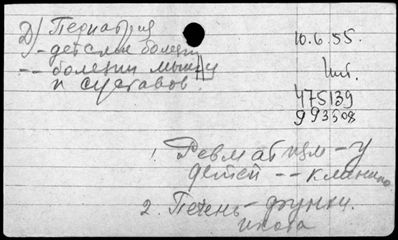 2) Педиатрия
- детские болезни
-- болезни мышц
и суставов
10.6.55.
Чит.
475139
993508
1. Ревматизм - у
детей -- клиника
2. Печень - функц.